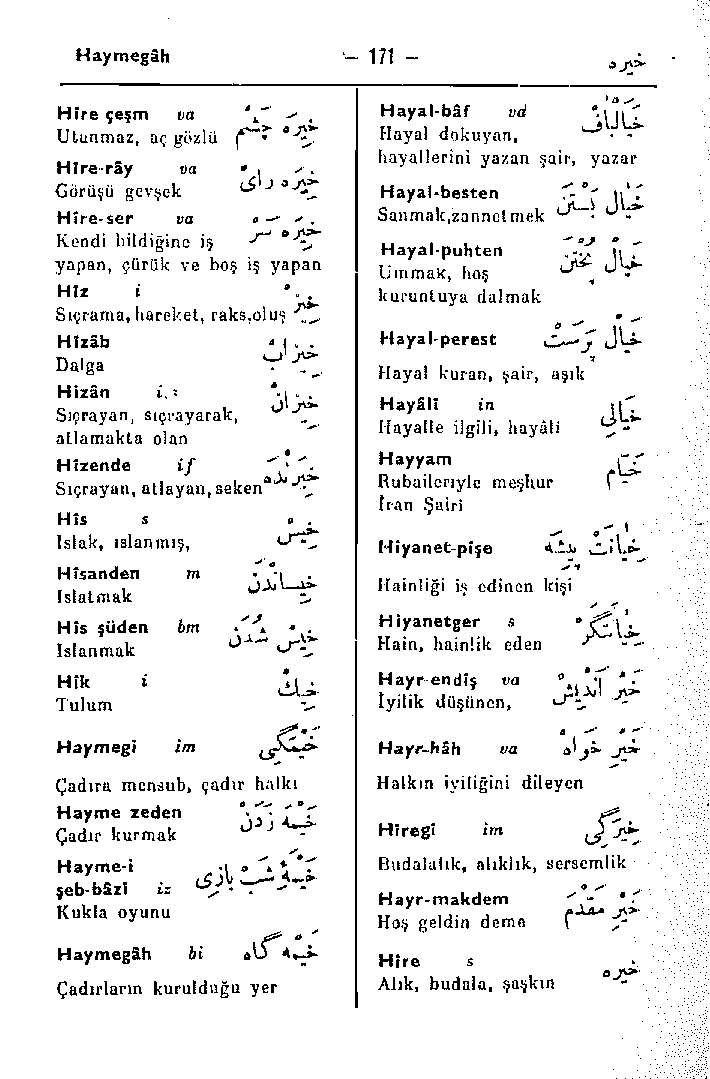 Haymegâh — 171 — خیره
Hîre çeşm va خیره چشم
Utanmaz, aç gözlü
Hîre-rây va خیره رای
Görüşü gevşek
Hîre-ser va خیره سر
Kendi bildiğine iş
yapan, çürük ve boş iş yapan
Hîz i خیز
Sıçrama, hareket, raks,oluş
Hîzâb خیزاب
Dalga
Hîzân i, خیزان
Sıçrayan, sıçrayarak,
atlamakta olan
Hîzende if خیزنده
Sıçrayan, atlayan, seken
Hîs s خیس
Islak, ıslanmış,
Hîsanden m خیساندن
Islatmak
Hîs şüden bm خیس شدن
Islanmak
Hîk i خیك
Tulum
Haymegî im خیمگی
Çadıra mensub, çadır halkı
Hayme zeden خیمه زدن
Çadır kurmak
Hayme-i
şeb-bâzî iz خیمه شب بازی
Kukla oyunu
Haymegâh bi خیمه گاه
Çadırların kurulduğu yer
Hayal-bâf vd خیالباف
Hayal dokuyan,
hayallerini yazan şair, yazar
Hayal-besten خیال بستن
Sanmak,zannetmek
Hayal-puhten خیال پختن
Ummak, hoş
kuruntuya dalmak
Hayal-perest خیال پرست
Hayal kuran, şair, aşık
Hayâlî in خیالی
Hayalle ilgili, hayâli
Hayyam خیام
Rubaileriyle meşhur
İran Şairi
Hiyanet-pîşe خیانت پیشه
Hainliği iş edinen kişi
Hiyanetger s خیانتگر
Hain, hainlik eden
Hayr-endîş va خیر اندیش
İyilik düşünen,
Hayr-hâh va خیر خواه
Halkın iyiliğini dileyen
Hîregî im خیرگی
Budalalık, alıklık, sersemlik
Hayr-makdem خیر مقدم
Hoş geldin deme
Hîre s خیره
Alık, budala, şaşkın